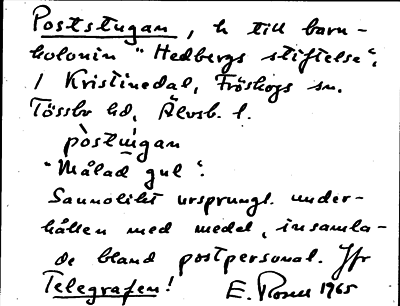 Poststugan, h till barn-
kolonin "Hedbergs stiftelse",
i Kristinedal, Fröskogs sn.
Tössbo hd, Älvsb. l.
pòstugan
"Målad gul".
Sannolikt ursprungl. under-
hållen med medel, insamla-
de bland postpersonal. Jfr
Telegrafen!
E. Rosell 1965